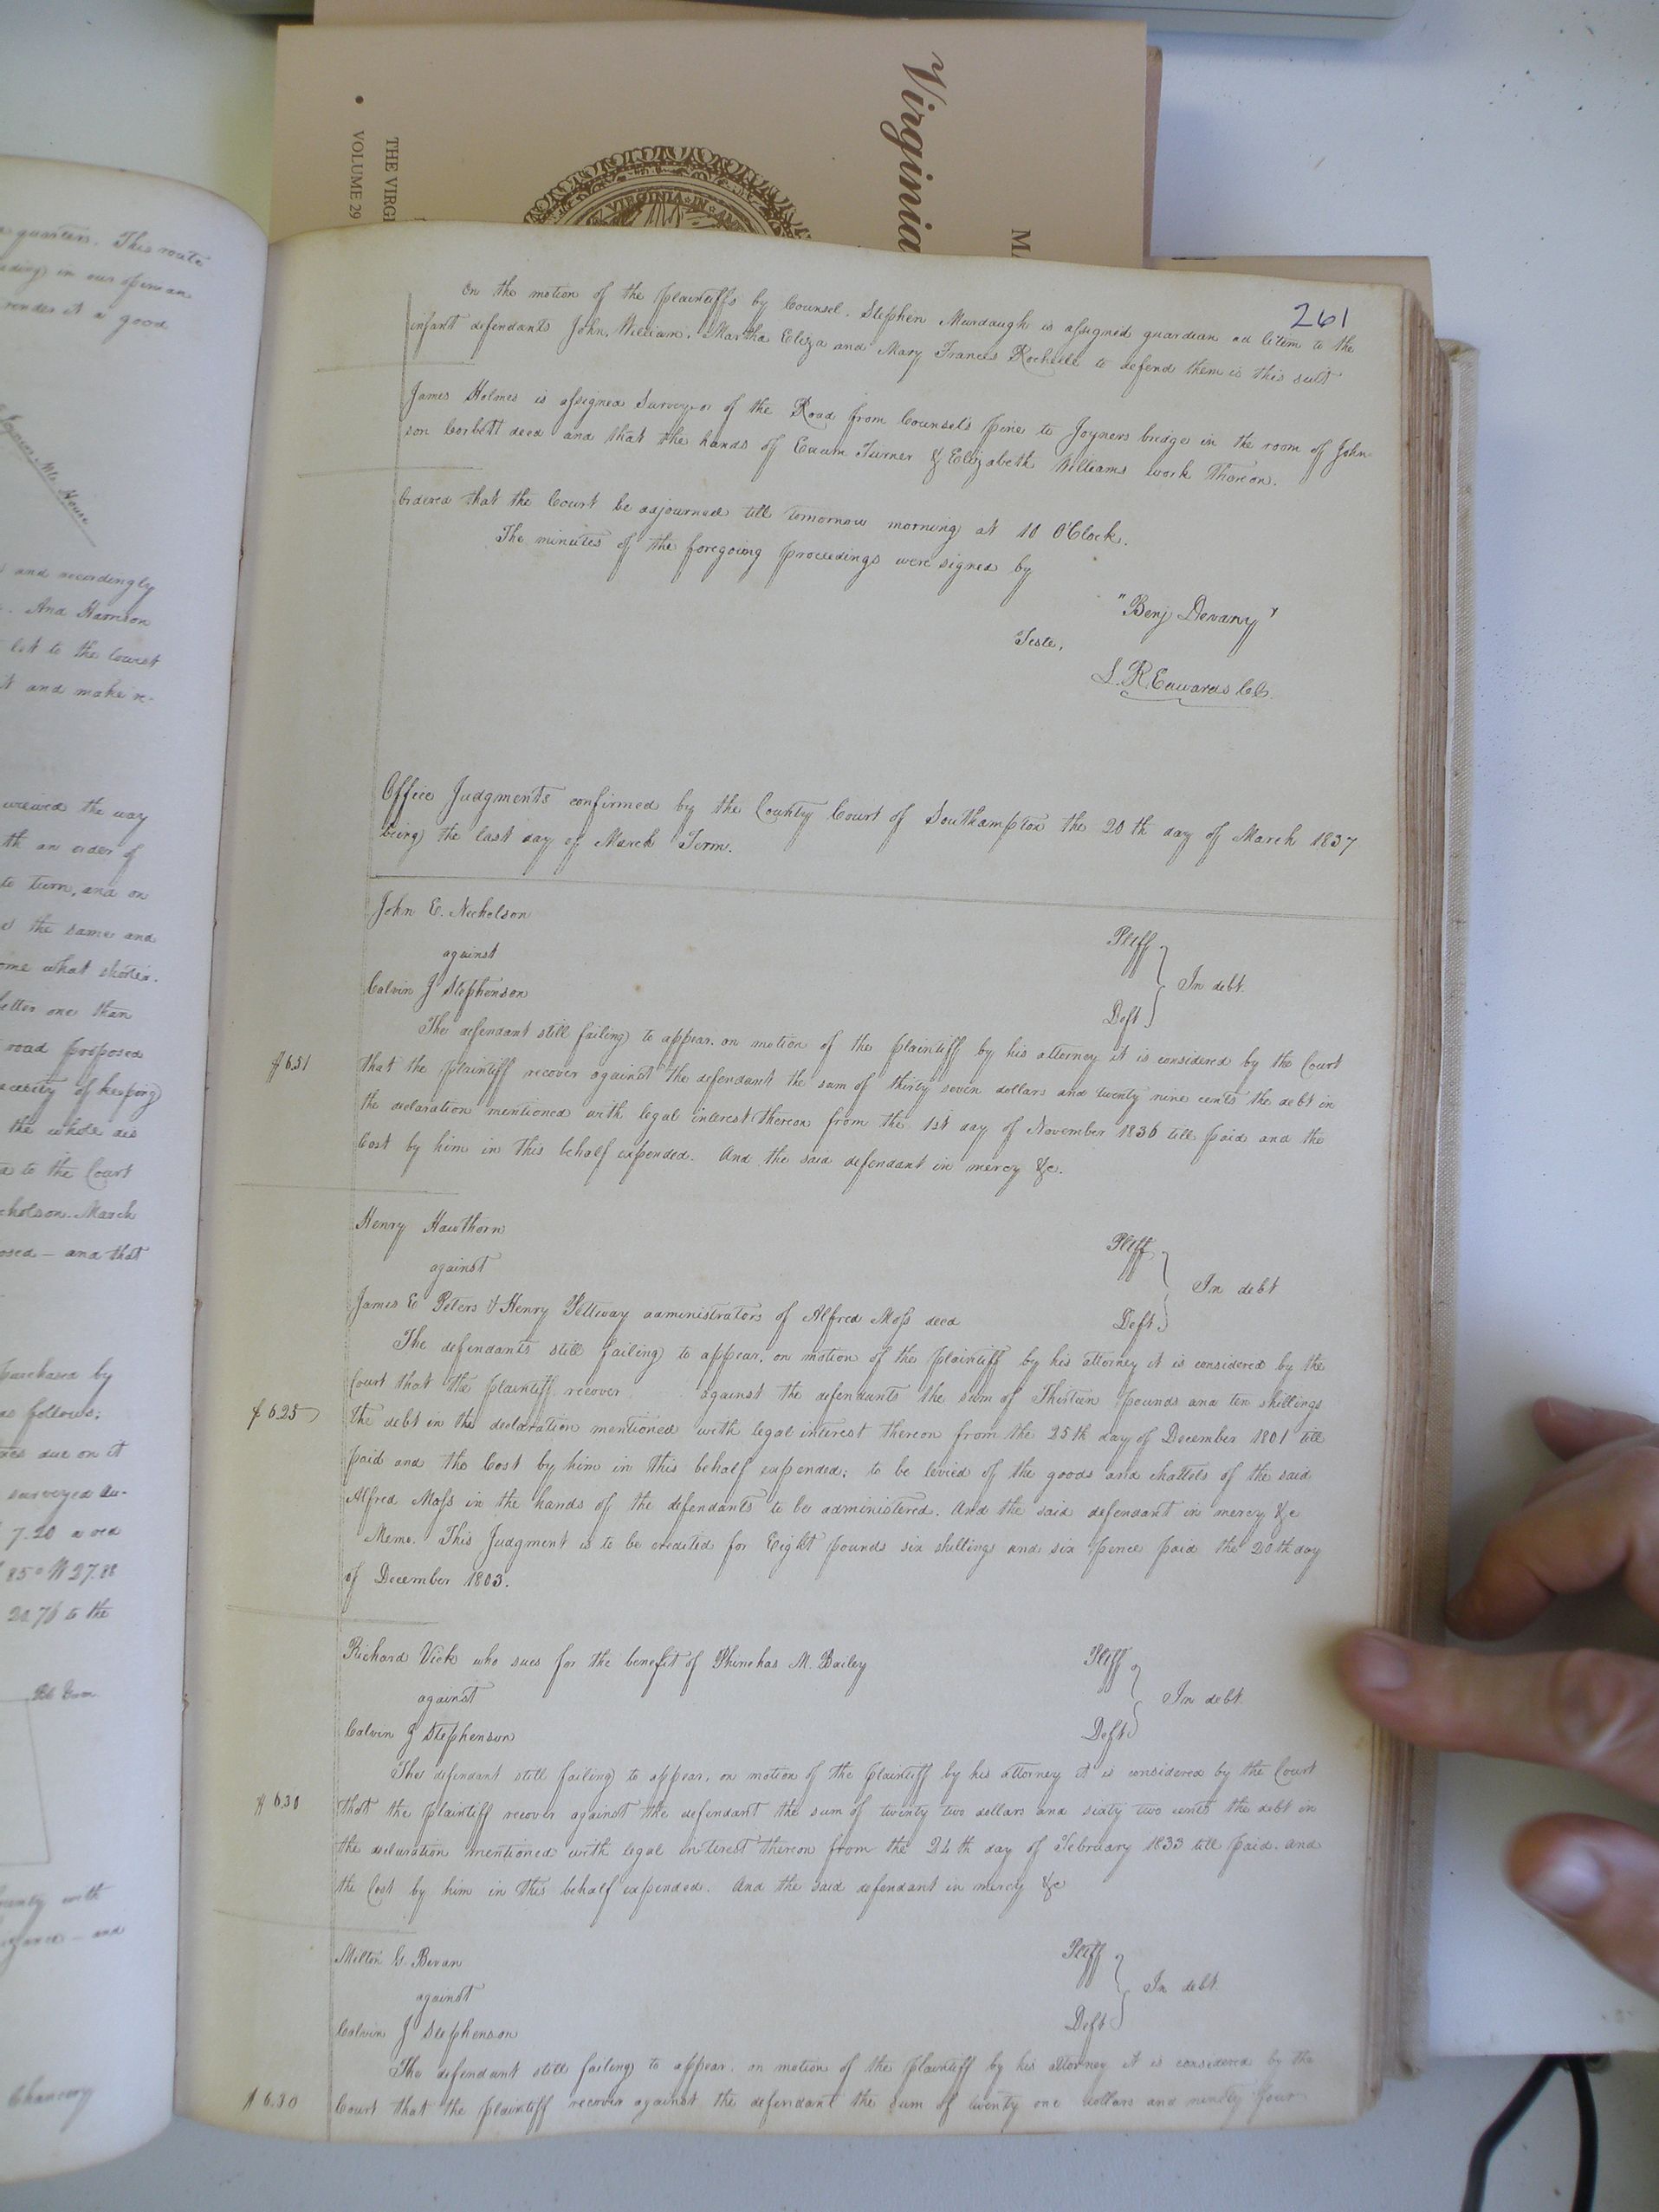 Virginia
THE VIRGI
VOLUME 29
VIRGINIA IN
quarters. This route
in our opinion
render it a good
and accordingly
And Harrison
let to the lowest
it and make re-
viewed the way
th an order of
to turn, and on
the same and
some what shorter.
better one than
road proposed
of keeping
the whole
to the Court
cholson. March
posed - and that
purchased by
as follows:
due on it
surveyed
7.20
85° W 27.88
20.76 to the
with
and
Chancery
261
On the motion of the plaintiffs by Counsel. Stephen Murdaugh is assigned guardian ad litem to the
infant defendants John, William, Martha Eliza and Mary Frances Rochelle to defend them is this suit
James Holmes is assigned Surveyor of the Road from Counsel's pine to Joyners bridge in the room of John-
son Corbett decd and that the hands of Turner & Elizabeth Williams work thereon.
Ordered that the Court be adjourned till tomorrow morning at 10 O'Clock.
The minutes of the foregoing proceedings were signed by
"Benj Devany"
Teste,
L. R. Edwards CC.
Office Judgments confirmed by the County Court of Southampton the 20th day of March 1837
being the last day of March Term.
John E. Nicholson
Pltff
against
In debt.
Calvin J Stephenson
Deft
The defendant still failing to appear, on motion of the plaintiff by his attorney it is considered by the Court
$6.51
that the plaintiff recover against the defendant the sum of thirty seven dollars and twenty nine cents the debt in
the declaration mentioned with legal interest thereon from the 1st day of November 1836 till paid and the
Cost by him in this behalf expended. And the said defendant in mercy &c.
Henry Hawthorn
Pltff
against
In debt
James E Peters & Henry Pettway administrators of Alfred Moss decd
Deft.
The defendants still failing to appear, on motion of the plaintiff by his attorney it is considered by the
Court that the plaintiff recover against the defendants the sum of Thirteen pounds and ten shillings
$6.25
the debt in the declaration mentioned with legal interest thereon from the 25th day of December 1801 till
paid and the Cost by him in this behalf expended; to be levied of the goods and chattels of the said
Alfred Moss in the hands of the defendants to be administered. And the said defendant in mercy &c
Memo. This Judgment is to be credited for Eight pounds six shillings and six pence paid the 20th day
of December 1803.
Richard Vick who sues for the benefit of Phinehas M. Bailey
Pltff
against
In debt.
Calvin J Stephenson
Deft
The defendant still failing to appear, on motion of the plaintiff by his attorney it is considered by the Court
$6.30
that the plaintiff recover against the defendant the sum of twenty two dollars and sixty two cents the debt in
the declaration mentioned with legal interest thereon from the 24th day of February 1833 till paid. and
the Cost by him in this behalf expended. And the said defendant in mercy &c
Milton G. Bevan
Pltff
against
In debt.
Calvin J Stephenson
Deft
The defendant still failing to appear, on motion of the plaintiff by his attorney it is considered by the
$6.30
Court that the plaintiff recover against the defendant the sum of twenty one dollars and ninety four